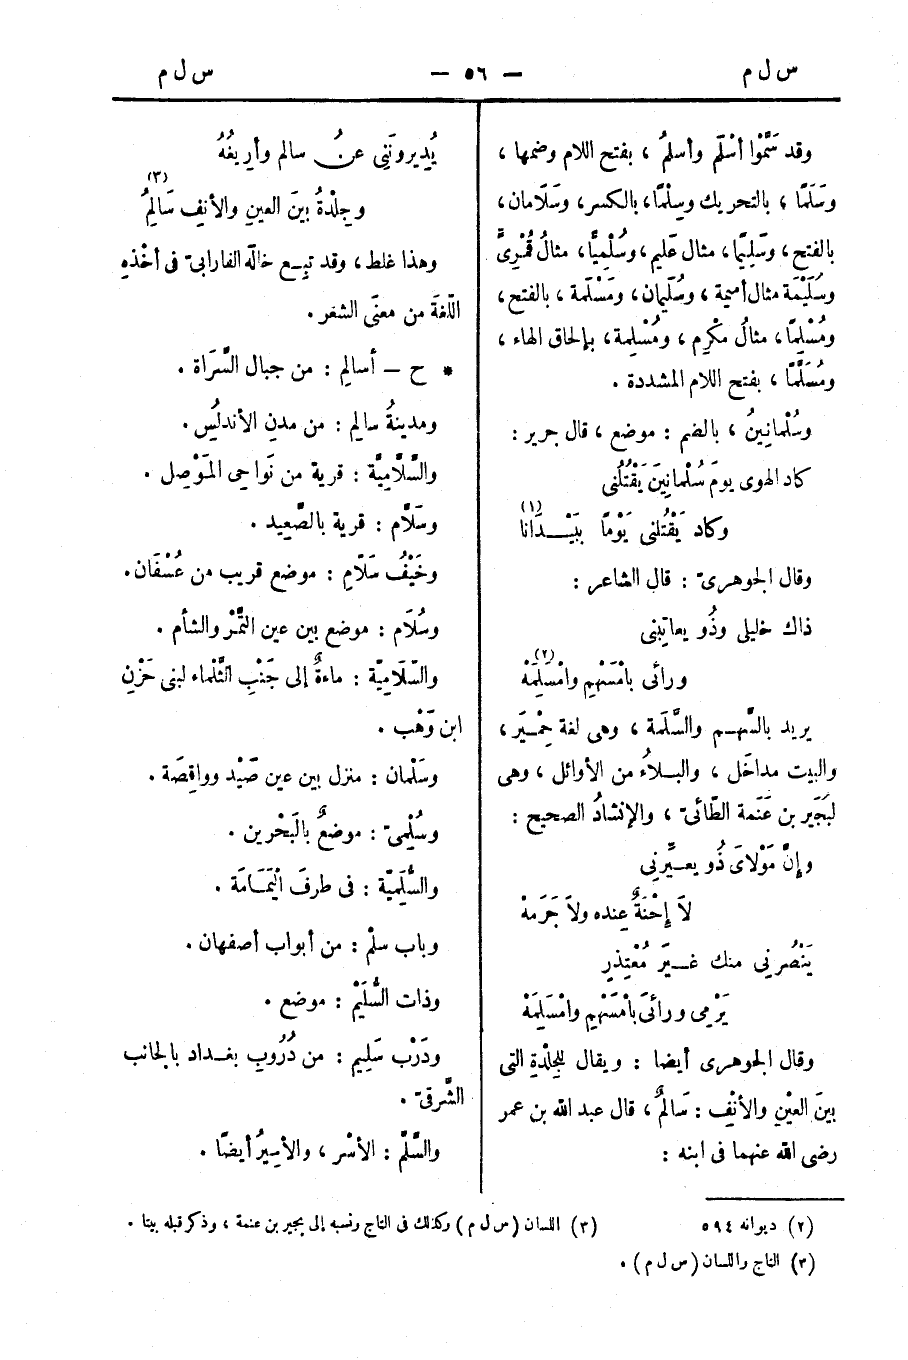 س ل م — ٥٦ — س ل م
وقد سَمَّوْا أسْلَم وأسلمُ ، بفتح اللام وضمها ،
وسَلَمًا ، بالتحريك وسِلْمًا ، بالكسر ، وسَلَامان ،
بالفتح ، وسَلِيمًا ، مثال عَليم ، وسُلْمِيًّا ، مثالُ قُمْرِيًّ
وسُلَيْمَة مثال أميمة ، وسُلَيمان ، ومَسْلَمة ، بالفتح ،
ومُسْلِمًا ، مثالُ مكْرِم ، ومُسْلِمة ، بإلحاق الهاء ،
ومُسَلَّمًا ، بفتح اللام المشددة .
وسُلْمانِينُ ، بالضم : موضع ، قال جرير :
كاد الهوى يومَ سُلْمانِينَ يَقْتُلُنى
وكاد يَقْتُلنى يَوْمًا بِبَيْــدَانا (١)
وقال الجوهرىّ : قال الشاعر :
ذاك خليلى وذُو يعاتِبنى
ورائى بامْسَهْمِ وامْسَلِمَهْ (٢)
يريد بالسَّهـم والسَّلِمَة ، وهى لغة حِمْـيَر ،
والبيت مداخَل ، والبـلاءُ من الأوائل ، وهى
لبُجَيْر بن عَنَمة الطّائىّ ، والإنشادُ الصحيح :
وإنَّ مَوْلاىَ ذُو يعـيِّرنِي
لاَ إحْنَةٌ عِنده ولاَ جَرَمهْ
يَنْصُرنِي منك غـيرَ مُعْتِذرِ
يَرْمِى ورائىَ بامْسَهْمِ وامْسَلِمَهْ
وقال الجوهرى أيضا : ويقال للجِلدةِ التى
بينَ العيْنِ والأنْفِ : سَالمٌ ، قال عبد الله بن عمر
رضى الله عنهما فى ابنه :
يُدِيرونَنِي عنْ سالم وأرِيغُهُ
وجِلْدةُ بينَ العينِ والأنفِ سَالِمُ (٣)
وهذا غلط ، وقد تبِـع خالَه الفارابىّ فى أخْذهِ
اللّغةَ من معنَى الشعْر .
* ح – أسالِم : من جبال السَّرَاة .
ومدينةُ سالِم : من مدنِ الأندلُسِ .
والسَّلَّامِيَّة : قرية من نَواحِى المَوْصِل .
وسَلَّام : قرية بالصَّعِيد .
وخَيْفُ سَلَّامٍ : موضع قريب من عُسْفَان .
وسُلَام : موضع بين عين التَّمْر والشأم .
والسَّلَامِيَّة : ماءةٌ إلى جَنْبِ الثَّلْماء لبنى حَزْنِ
ابن وَهْب .
وسَلْمان : منزل بين عين صَيْد وواقِصَة .
وسُلْمِىّ : موضعٌ بالبَحْرين .
والسُّلَمِيَّة : فى طرفَ اليَمَـامَة .
وباب سلْم : من أبواب أصفهان .
وذات السُّلَيْمِ : موضع .
ودَرْب سَلِيم : من دُرُوبِ بغـداد بالجانب
الشَّرقىّ .
والسَّلْم : الأسْر ، والأسِيرُ أيضًا .
(٢) ديوانه ٥٩٤ (٣) اللسان (س ل م) وكذلك فى التاج ونسبه إلى بجير بن عنمة ، وذكر قبله بيتا .
(٣) التاج واللسان (س ل م) .